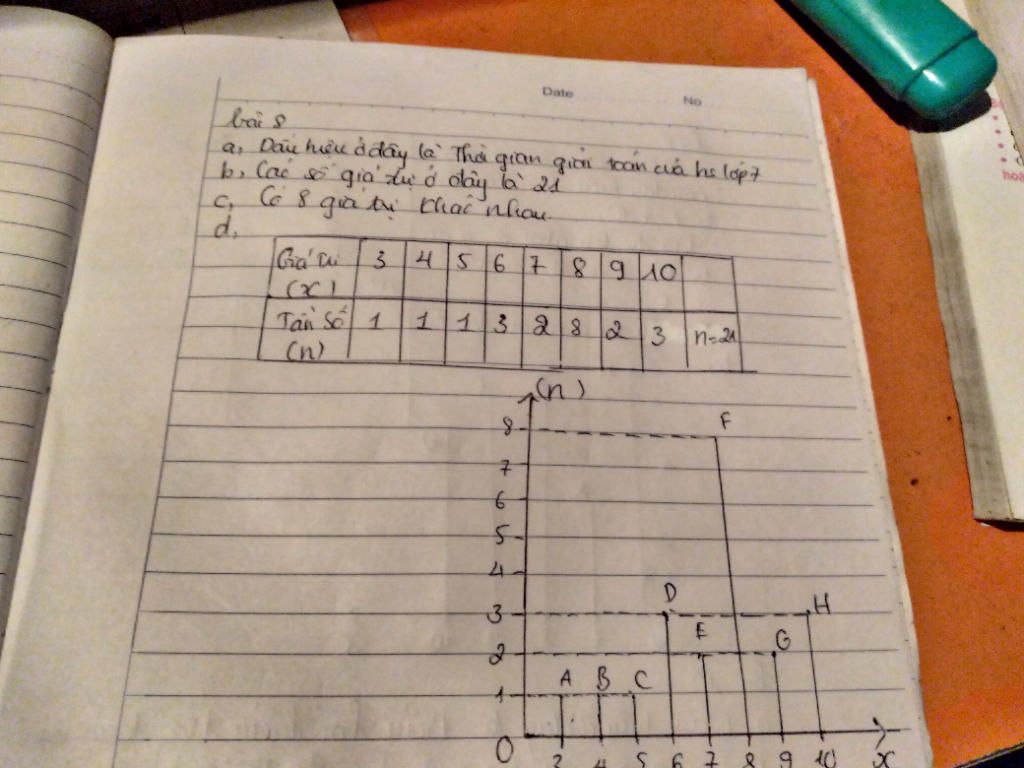 Date No
bài 8
a, Dấu hiệu ở đây là Thời gian giải toán của hs lớp 7
b, Các số giá trị ở đây là 21
c, Có 8 giá trị khác nhau.
d,
Giá trị (x) 3 4 5 6 7 8 9 10
Tần số (n) 1 1 1 3 2 8 2 3 n=21
(n)
8 F
7
6
5
4
3 D H
2 E G
1 A B C
O 3 4 5 6 7 8 9 10 x